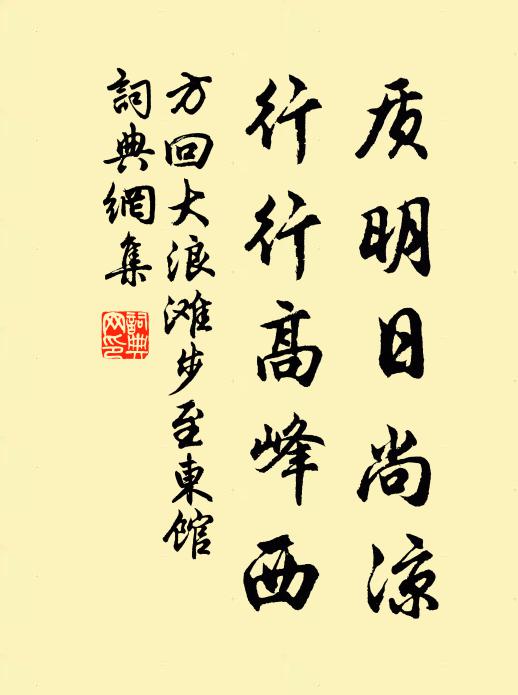 质明日尚凉
行行高峰西
方回大浪滩步至東館
詞典網集
詞典网印